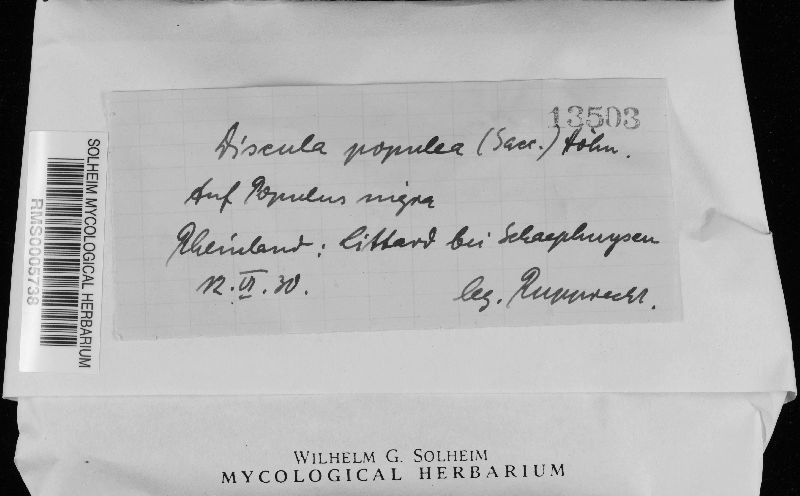 13503
Discula populea (Sacc.) Höhn.
Auf Populus nigra
Rheinland: Littard bei Schaephuysen
12.VI.30.
leg. Rupprecht.
SOLHEIM MYCOLOGICAL HERBARIUM
RMS0005738
WILHELM G. SOLHEIM
MYCOLOGICAL HERBARIUM